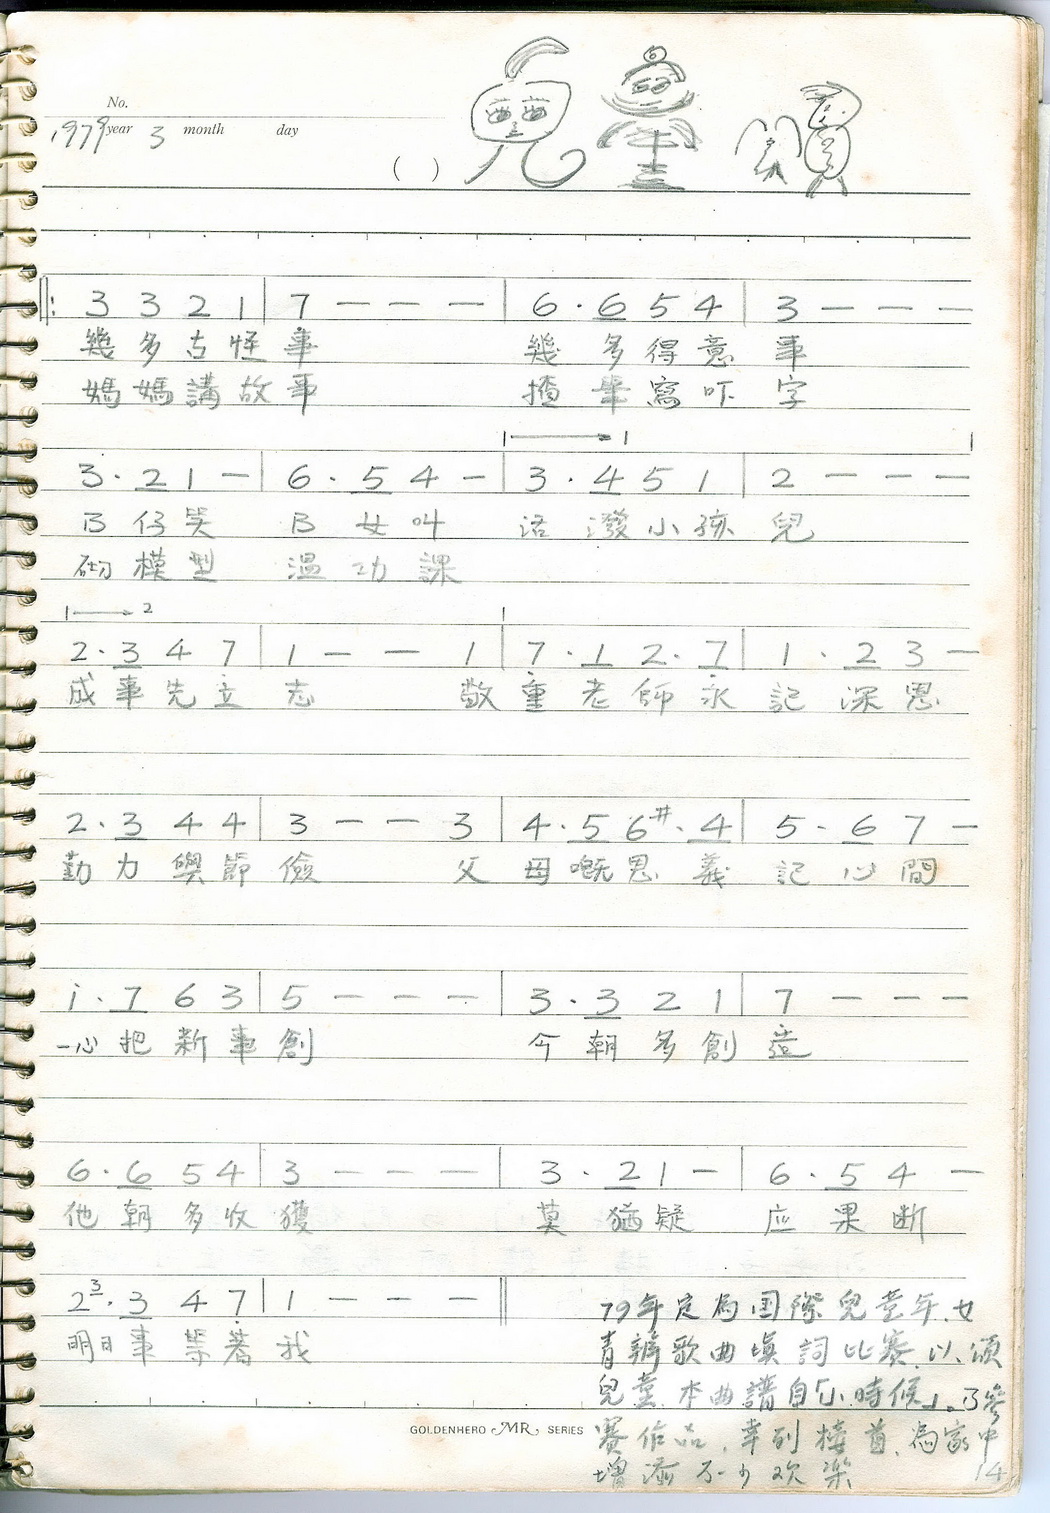 No.
1979 year 3 month day
( ) 兒童頌
‖: 3 3 2 1 | 7 — — — | 6 · 6 5 4 | 3 — — —
幾多古怪事 幾多得意事
媽媽講故事 揸筆寫吓字
1 → 1
3 · 2 1 — | 6 · 5 4 — | 3 · 4 5 1 | 2 — — —
B仔哭 B女叫 活潑小孩兒
砌模型 溫功課
1 → 2
2 · 3 4 7 | 1 — — 1 | 7 · 1 2 · 7 | 1 · 2 3 —
成事先立志 敬重老師永記深恩
2 · 3 4 4 | 3 — — 3 | 4 · 5 6# · 4 | 5 · 6 7 —
勤力與節儉 父母嘅恩義記心間
i · 7 6 3 | 5 — — — | 3 · 3 2 1 | 7 — — —
一心把新事創 今朝多創造
6 · 6 5 4 | 3 — — — | 3 · 2 1 — | 6 · 5 4 —
他朝多收獲 莫猶疑 应果断
2 3 · 3 4 7 | 1 — — — ‖
明日事等著我
79年定為国際兒童年.女
青辦歌曲填詞比賽.以頌
兒童.本曲譜自「小時候」.乃參
賽作品.幸列榜首.為家中
增添不少欢樂
GOLDENHERO MR SERIES
14